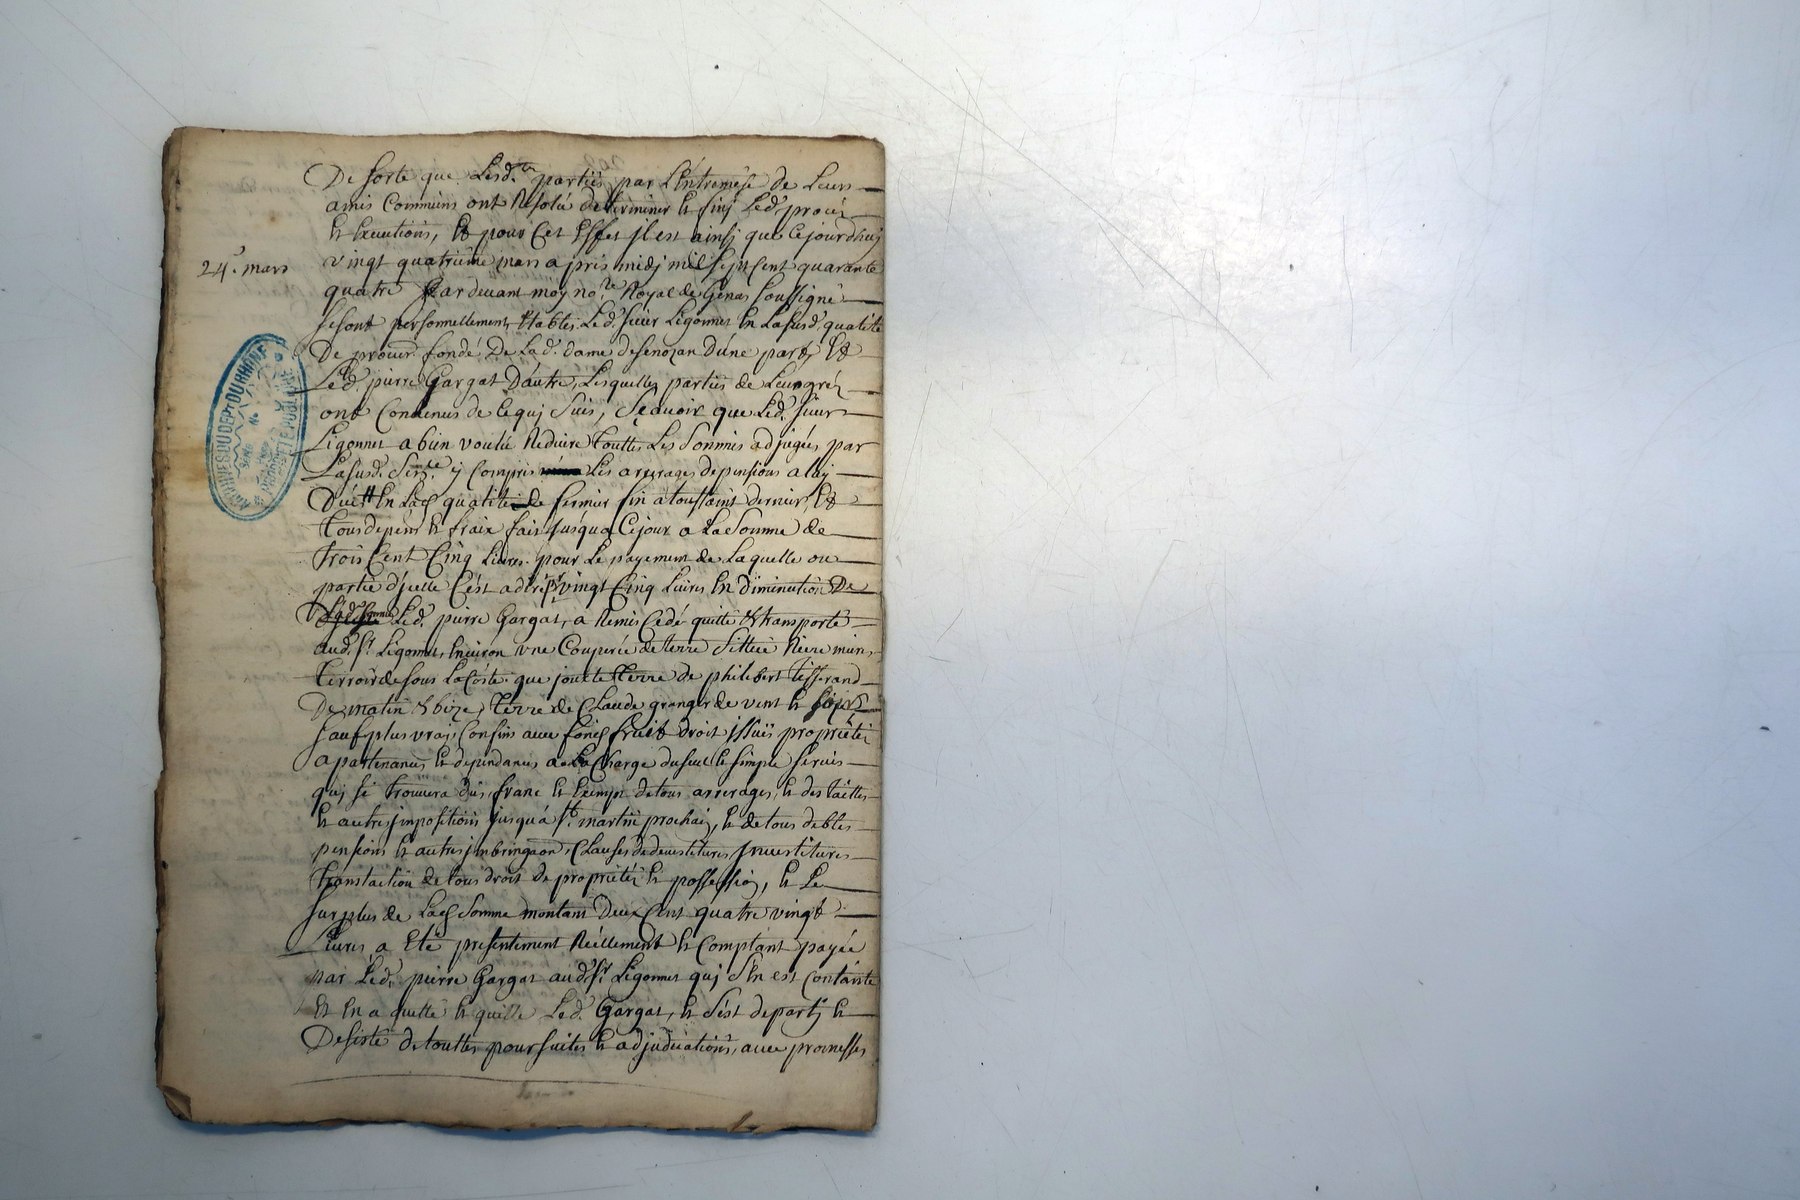 De sorte que Lesd.tes parties par L'entremise de Leurs
amis Communs ont Resolu determiner et finj Led.t procés
et Executions, Et pour Cet Effet jl est ainsj que Cejourdhuj
24.e mars
vingt quatrieme mars apres midj mil sept Cent quarante
quatre Pardevant moy no.re Royal de Genas soussigné
se sont personnellement Etablis Led. sieur Ligonnet En Lasusd. qualité
De procur. fondé De Lad. dame desenozan D'une part, Et
Led. pierre Gargat D'autre, Lesquelles parties de Leur gréz
ont Convenus de Cequj Suis, Sçavoir que Led. sieur
Ligonnet a bien voulu Reduire Touttes Les Sommes adjugées par
Lasusd. Sen.ce y Compris Les arrerages de pensions a luy
Dues En Lad. qualité de fermier fin a toussaint dernier, Et
Tous depens et fraix fait jusqua Cejour a La Somme de
Trois Cent Cinq Livres. pour Le payement de Laquelle ou
partie d'jcelle C'est a dire vingt Cinq Livres En Diminution De
Lad. Somme Led. pierre Gargat, a Remis Cedé quitté & transporté
aud. S.r Ligonnet, Environ une Couperée de terre Sittuée Riere mien
Terroir dessous La Coste que jouxte Terre de philibert Tisserand
De matin & bize, Terre de Claude granger de vent et soir
sauf plus vrais Confins avec fond fruit droit jssües proprietés
apartenances et dependances a La Charge du seul et simple servis
quj se trouvera dus, franc et Exempt de tous arrerages, et des tailles
et autres jmpositions jusqu'a S.t martin prochain, et de tous debtes
pensions et autres Clauses de devestitures jnvestitures
Translation de tous droit de proprietéz et possession, et Le
surplus de Lad. Somme montant Deux Cent quatre vingt
Livres a Eté presentement Réellement et Comptant payée
par Led. pierre Gargat aud. S.r Ligonnet quj S'en est Contante
Et En a quitté et quitte Led. Gargat, et S'est departj et
Desisté de touttes poursuites et adjudications, avec promesses
ARCHIVES DU DEP.T DU RHONE